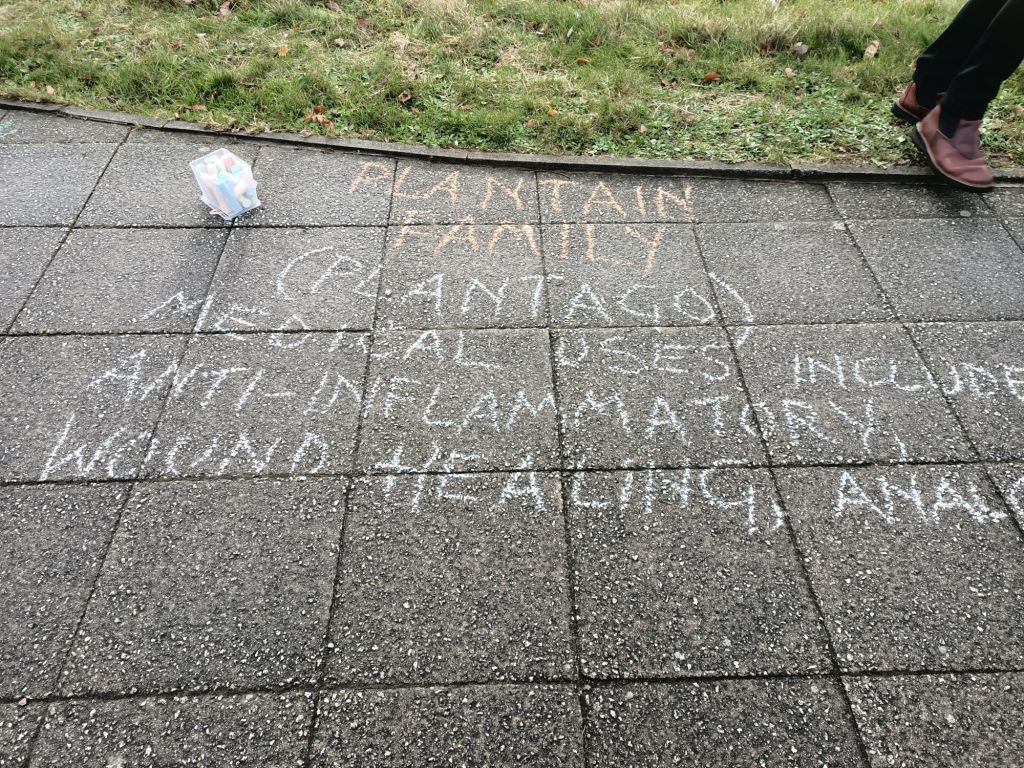 PLANTAIN
FAMILY
(PLANTAGO)
MEDICAL USES INCLUDE
ANTI-INFLAMMATORY,
WOUND HEALING, ANALG